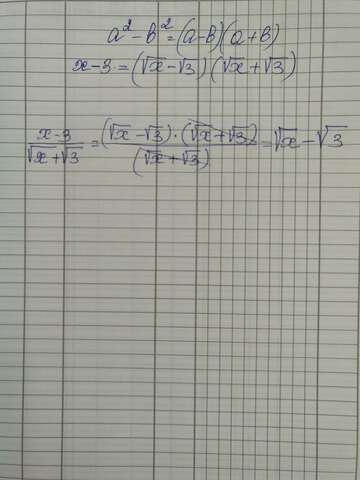 a² - b² = (a-b)(a+b)
x-3 = (√x - √3)(√x + √3)
x-3/√x+√3 = (√x - √3)·(√x + √3)/(√x + √3) = √x - √3